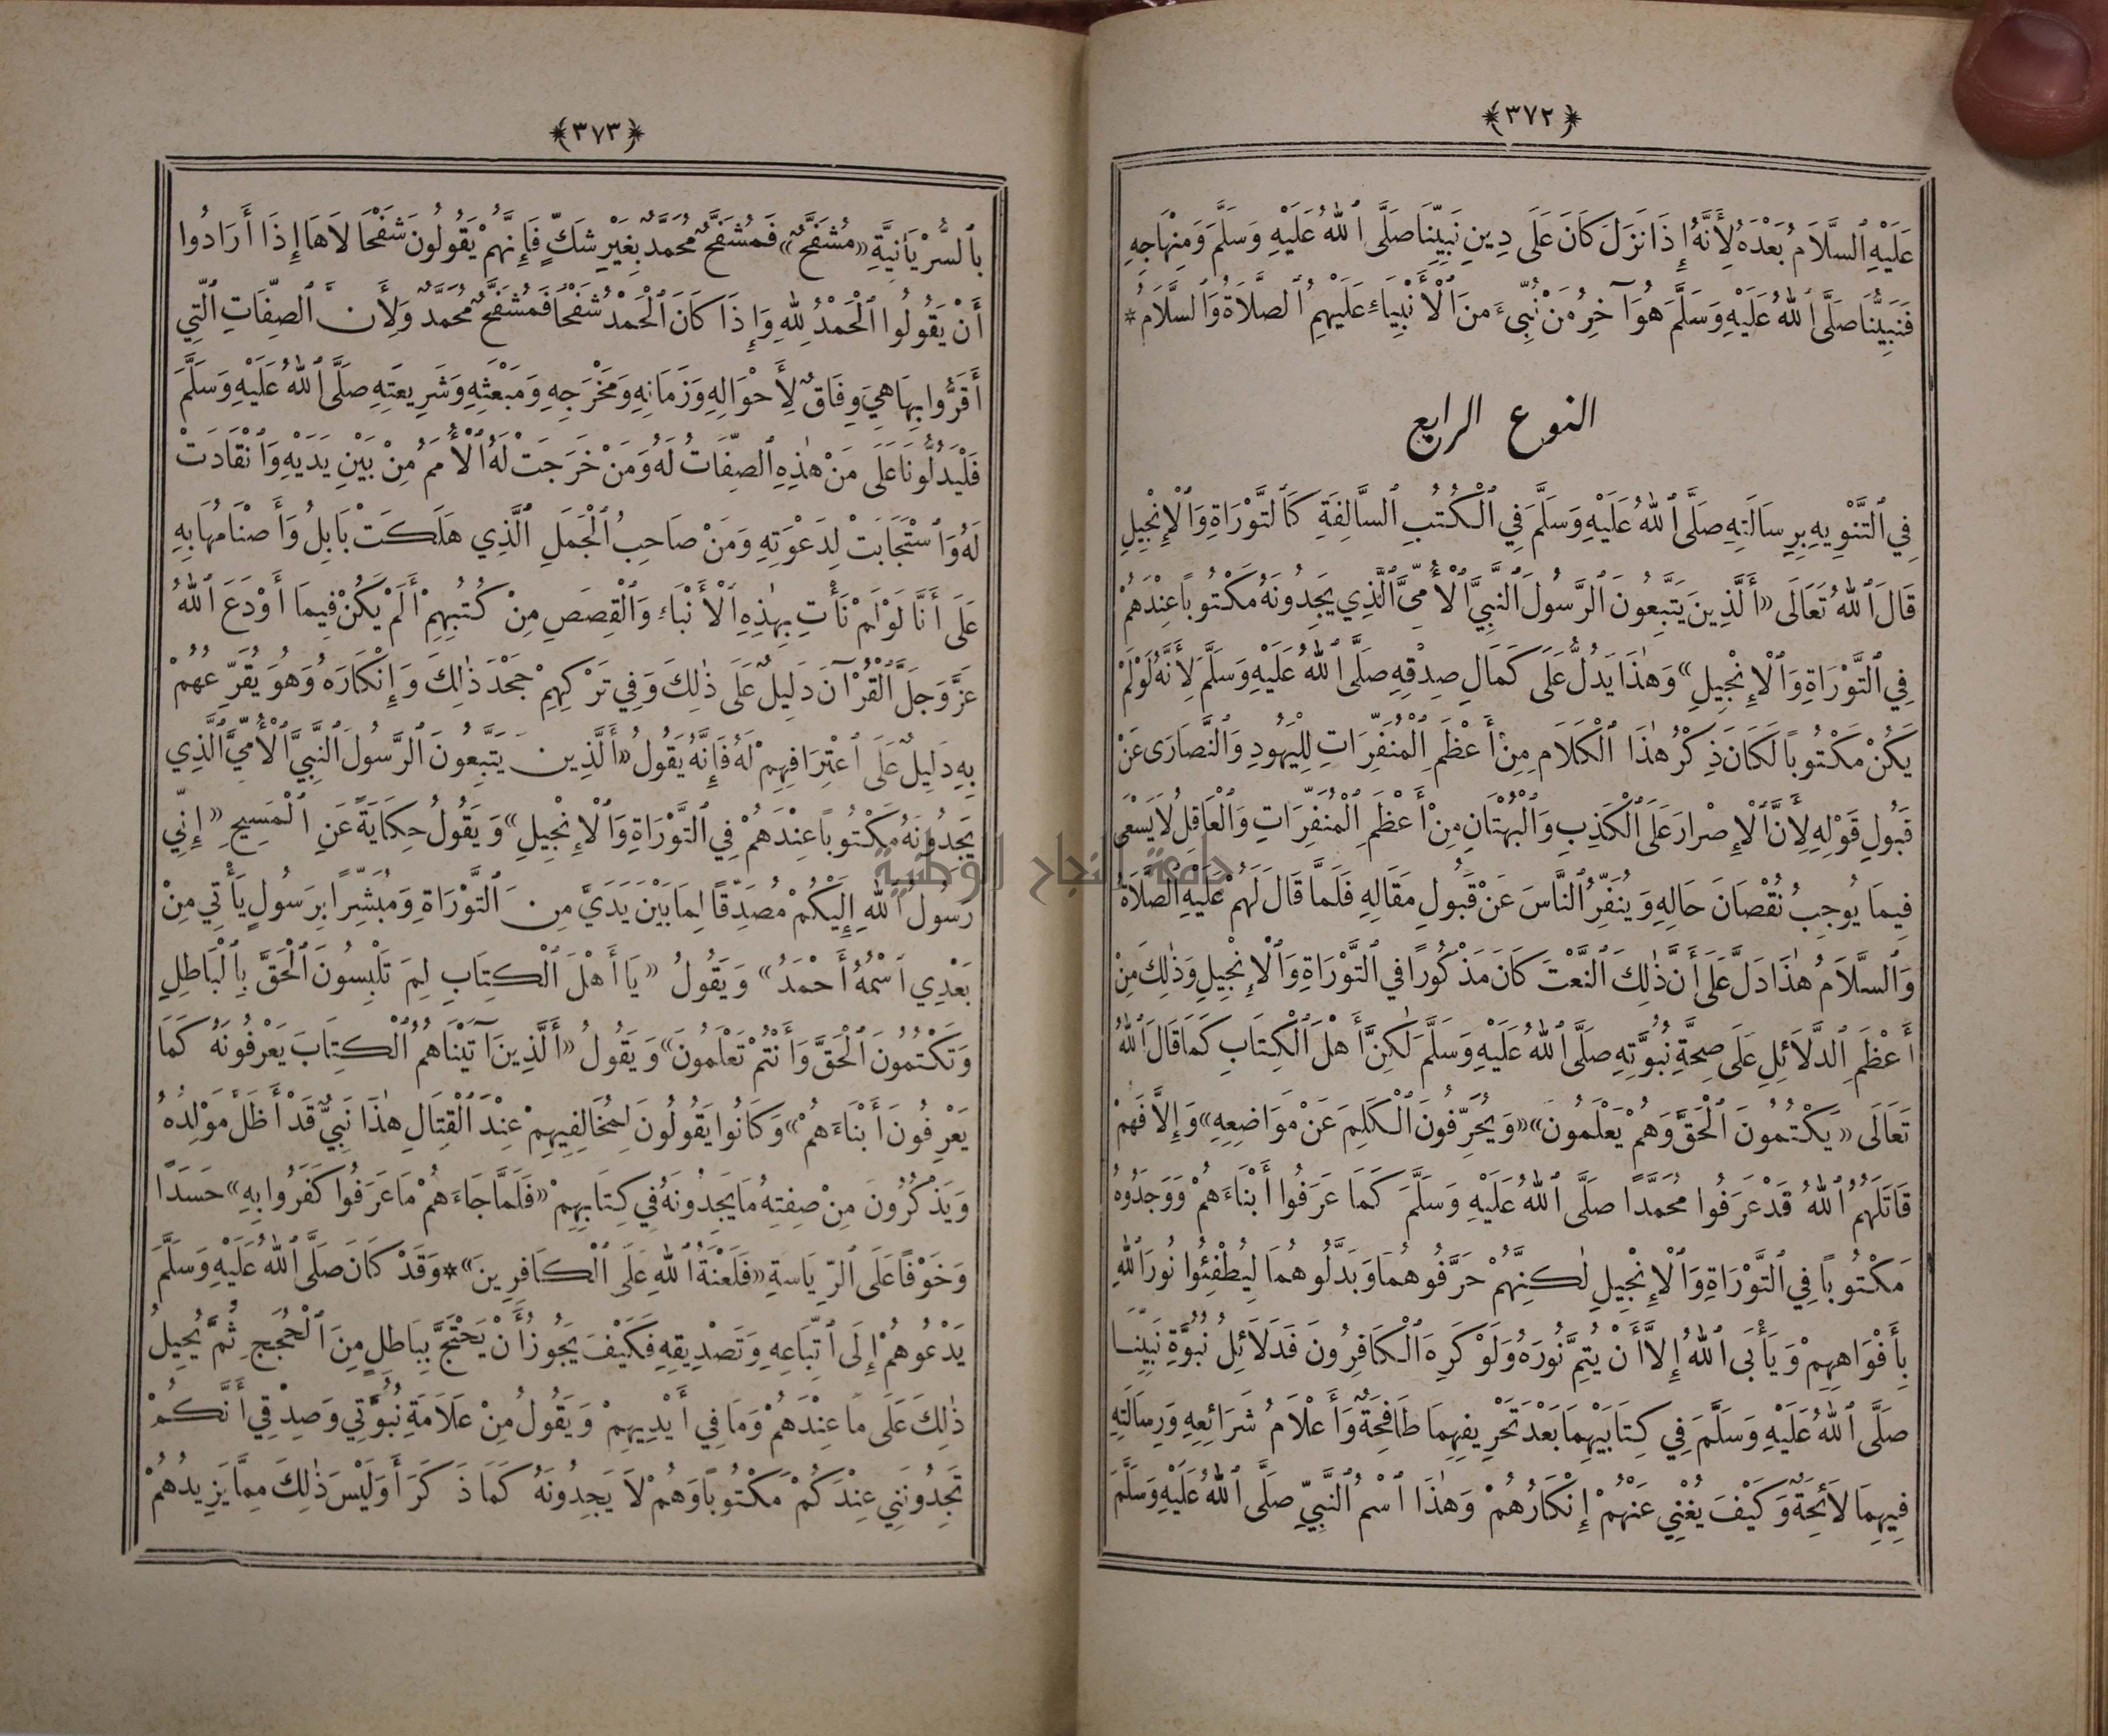 ﴿٣٧٢﴾
عَلَيْهِ ٱلسَّلَامُ بَعْدَهُ لِأَنَّهُ إِذَا نَزَلَ كَانَ عَلَى دِينِ نَبِيِّنَا صَلَّى ٱللهُ عَلَيْهِ وَسَلَّمَ وَمِنْهَاجِهِ
فَنَبِيُّنَا صَلَّى ٱللهُ عَلَيْهِ وَسَلَّمَ هُوَ آخِرُ مَنْ نُبِّىءَ مِنَ ٱلْأَنْبِيَاءِ عَلَيْهِمُ ٱلصَّلَاةُ وَٱلسَّلَامُ *
النوع الرابع
فِي ٱلتَّنْوِيهِ بِرِسَالَتِهِ صَلَّى ٱللهُ عَلَيْهِ وَسَلَّمَ فِي ٱلْكُتُبِ ٱلسَّالِفَةِ كَٱلتَّوْرَاةِ وَٱلْإِنْجِيلِ
قَالَ ٱللهُ تَعَالَى «أَلَّذِينَ يَتَّبِعُونَ ٱلرَّسُولَ ٱلنَّبِيَّ ٱلْأُمِّيَّ ٱلَّذِي يَجِدُونَهُ مَكْتُوبًا عِنْدَهُمْ
فِي ٱلتَّوْرَاةِ وَٱلْإِنْجِيلِ» وَهٰذَا يَدُلُّ عَلَى كَمَالِ صِدْقِهِ صَلَّى ٱللهُ عَلَيْهِ وَسَلَّمَ لِأَنَّهُ لَوْ لَمْ
يَكُنْ مَكْتُوبًا لَكَانَ ذِكْرُ هٰذَا ٱلْكَلَامِ مِنْ أَعْظَمِ ٱلْمُنَفِّرَاتِ لِلْيَهُودِ وَٱلنَّصَارَى عَنْ
قَبُولِ قَوْلِهِ لِأَنَّ ٱلْإِصْرَارَ عَلَى ٱلْكَذِبِ وَٱلْبُهْتَانِ مِنْ أَعْظَمِ ٱلْمُنَفِّرَاتِ وَٱلْعَاقِلُ لَا يَسْعَى
فِيمَا يُوجِبُ نُقْصَانَ حَالِهِ وَيُنَفِّرُ ٱلنَّاسَ عَنْ قَبُولِ مَقَالِهِ فَلَمَّا قَالَ لَهُمْ عَلَيْهِ ٱلصَّلَاةُ
وَٱلسَّلَامُ هٰذَا دَلَّ عَلَى أَنَّ ذٰلِكَ ٱلنَّعْتَ كَانَ مَذْكُورًا فِي ٱلتَّوْرَاةِ وَٱلْإِنْجِيلِ وَذٰلِكَ مِنْ
أَعْظَمِ ٱلدَّلَائِلِ عَلَى صِحَّةِ نُبُوَّتِهِ صَلَّى ٱللهُ عَلَيْهِ وَسَلَّمَ لٰكِنَّ أَهْلَ ٱلْكِتَابِ كَمَا قَالَ ٱللهُ
تَعَالَى «يَكْتُمُونَ ٱلْحَقَّ وَهُمْ يَعْلَمُونَ» «وَيُحَرِّفُونَ ٱلْكَلِمَ عَنْ مَوَاضِعِهِ» وَإِلَّا فَهُمْ
قَاتَلَهُمُ ٱللهُ قَدْ عَرَفُوا مُحَمَّدًا صَلَّى ٱللهُ عَلَيْهِ وَسَلَّمَ كَمَا عَرَفُوا أَبْنَاءَهُمْ وَوَجَدُوهُ
مَكْتُوبًا فِي ٱلتَّوْرَاةِ وَٱلْإِنْجِيلِ لٰكِنَّهُمْ حَرَّفُوهُمَا وَبَدَّلُوهُمَا لِيُطْفِئُوا نُورَ ٱللهِ
بِأَفْوَاهِهِمْ وَيَأْبَى ٱللهُ إِلَّا أَنْ يُتِمَّ نُورَهُ وَلَوْ كَرِهَ ٱلْكَافِرُونَ فَدَلَائِلُ نُبُوَّةِ نَبِيِّنَا
صَلَّى ٱللهُ عَلَيْهِ وَسَلَّمَ فِي كِتَابَيْهِمَا بَعْدَ تَحْرِيفِهِمَا طَافِحَةٌ وَأَعْلَامُ شَرَائِعِهِ وَرِسَالَتِهِ
فِيهِمَا لَائِحَةٌ وَكَيْفَ يُغْنِي عَنْهُمْ إِنْكَارُهُمْ وَهٰذَا ٱسْمُ ٱلنَّبِيِّ صَلَّى ٱللهُ عَلَيْهِ وَسَلَّمَ
﴿٣٧٣﴾
بِٱلسُّرْيَانِيَّةِ «مُشَفَّحٌ» فَمُشَفَّحٌ مُحَمَّدٌ بِغَيْرِ شَكٍّ فَإِنَّهُمْ يَقُولُونَ شَفْحًا لَاهَا إِذَا أَرَادُوا
أَنْ يَقُولُوا ٱلْحَمْدُ لِلهِ وَإِذَا كَانَ ٱلْحَمْدُ شَفْحًا فَمُشَفَّحٌ مُحَمَّدٌ وَلِأَنَّ ٱلصِّفَاتِ ٱلَّتِي
أَقَرُّوا بِهَا هِيَ وِفَاقٌ لِأَحْوَالِهِ وَزَمَانِهِ وَمَخْرَجِهِ وَمَبْعَثِهِ وَشَرِيعَتِهِ صَلَّى ٱللهُ عَلَيْهِ وَسَلَّمَ
فَلْيَدُلُّونَا عَلَى مَنْ هٰذِهِ ٱلصِّفَاتُ لَهُ وَمَنْ خَرَجَتْ لَهُ ٱلْأُمَمُ مِنْ بَيْنِ يَدَيْهِ وَٱنْقَادَتْ
لَهُ وَٱسْتَجَابَتْ لِدَعْوَتِهِ وَمَنْ صَاحِبُ ٱلْجَمَلِ ٱلَّذِي هَلَكَتْ بَابِلُ وَأَصْنَامُهَا بِهِ
عَلَى أَنَّا لَوْ لَمْ نَأْتِ بِهٰذِهِ ٱلْأَنْبَاءِ وَٱلْقِصَصِ مِنْ كُتُبِهِمْ أَلَمْ يَكُنْ فِيمَا أَوْدَعَ ٱللهُ
عَزَّ وَجَلَّ ٱلْقُرْآنَ دَلِيلٌ عَلَى ذٰلِكَ وَفِي تَرْكِهِمْ جَحْدَ ذٰلِكَ وَإِنْكَارَهُ وَهُوَ يُقَرِّعُهُمْ
بِهِ دَلِيلٌ عَلَى ٱعْتِرَافِهِمْ لَهُ فَإِنَّهُ يَقُولُ «أَلَّذِينَ يَتَّبِعُونَ ٱلرَّسُولَ ٱلنَّبِيَّ ٱلْأُمِّيَّ ٱلَّذِي
يَجِدُونَهُ مَكْتُوبًا عِنْدَهُمْ فِي ٱلتَّوْرَاةِ وَٱلْإِنْجِيلِ» وَيَقُولُ حِكَايَةً عَنِ ٱلْمَسِيحِ «إِنِّي
رَسُولُ ٱللهِ إِلَيْكُمْ مُصَدِّقًا لِمَا بَيْنَ يَدَيَّ مِنَ ٱلتَّوْرَاةِ وَمُبَشِّرًا بِرَسُولٍ يَأْتِي مِنْ
بَعْدِي ٱسْمُهُ أَحْمَدُ» وَيَقُولُ «يَا أَهْلَ ٱلْكِتَابِ لِمَ تَلْبِسُونَ ٱلْحَقَّ بِٱلْبَاطِلِ
وَتَكْتُمُونَ ٱلْحَقَّ وَأَنْتُمْ تَعْلَمُونَ» وَيَقُولُ «أَلَّذِينَ آتَيْنَاهُمُ ٱلْكِتَابَ يَعْرِفُونَهُ كَمَا
يَعْرِفُونَ أَبْنَاءَهُمْ» وَكَانُوا يَقُولُونَ لِمُخَالِفِيهِمْ عِنْدَ ٱلْقِتَالِ هٰذَا نَبِيٌّ قَدْ أَظَلَّ مَوْلِدُهُ
وَيَذْكُرُونَ مِنْ صِفَتِهِ مَا يَجِدُونَهُ فِي كِتَابِهِمْ «فَلَمَّا جَاءَهُمْ مَا عَرَفُوا كَفَرُوا بِهِ» حَسَدًا
وَخَوْفًا عَلَى ٱلرِّيَاسَةِ «فَلَعْنَةُ ٱللهِ عَلَى ٱلْكَافِرِينَ» * وَقَدْ كَانَ صَلَّى ٱللهُ عَلَيْهِ وَسَلَّمَ
يَدْعُوهُمْ إِلَى ٱتِّبَاعِهِ وَتَصْدِيقِهِ فَكَيْفَ يَجُوزُ أَنْ يَحْتَجَّ بِبَاطِلٍ مِنَ ٱلْحُجَجِ ثُمَّ يُحِيلُ
ذٰلِكَ عَلَى مَا عِنْدَهُمْ وَمَا فِي أَيْدِيهِمْ وَيَقُولُ مِنْ عَلَامَةِ نُبُوَّتِي وَصِدْقِي أَنَّكُمْ
تَجِدُونَنِي عِنْدَكُمْ مَكْتُوبًا وَهُمْ لَا يَجِدُونَهُ كَمَا ذَكَرَ أَوَلَيْسَ ذٰلِكَ مِمَّا يَزِيدُهُمْ
جامعة النجاح الوطنية